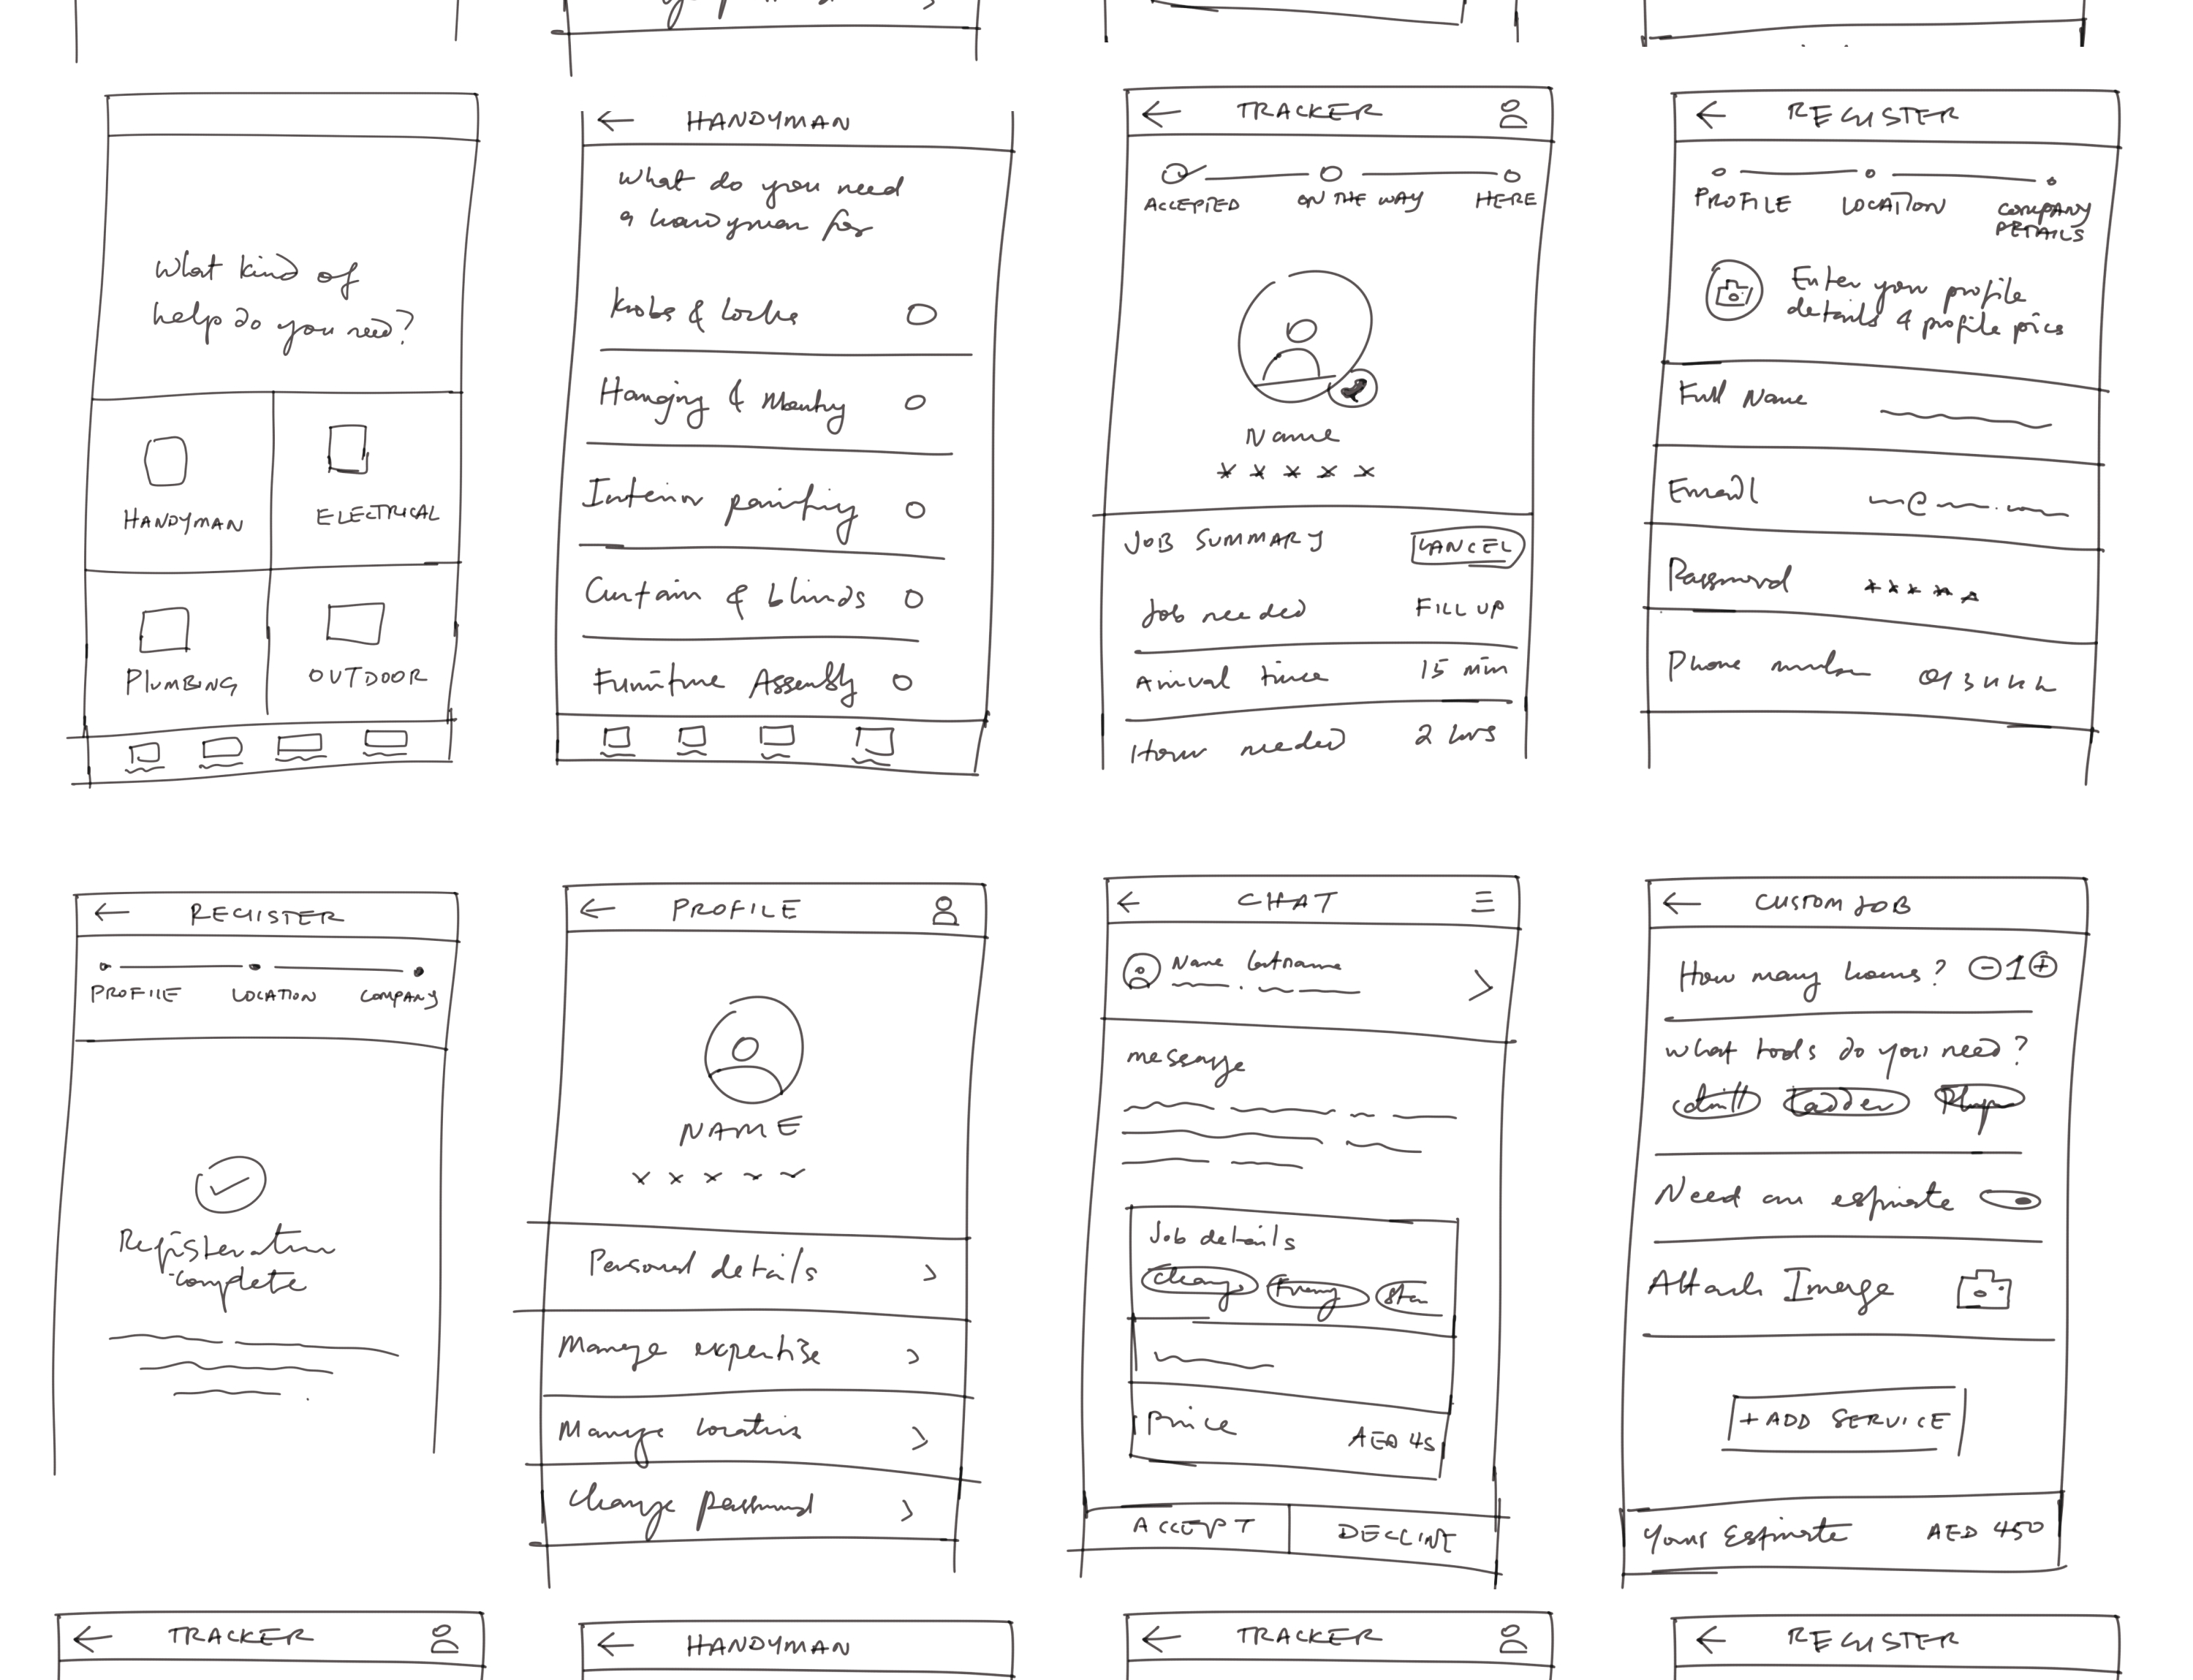 What kind of
help do you need?
HANDYMAN
ELECTRICAL
PLUMBING
OUTDOOR
HANDYMAN
What do you need
a handyman for
Knobs & Locks
Hanging &
Interior painting
Curtain & blinds
Furniture Assembly
TRACKER
ACCEPTED
ON THE WAY
HERE
Name
JOB SUMMARY
CANCEL
Job needed
FILL UP
Arrival time
15 min
Hour needed
2 hrs
REGISTER
PROFILE
LOCATION
COMPANY
DETAILS
Enter your profile
details & profile pics
Full Name
Email
Password
Phone number
REGISTER
PROFILE
LOCATION
COMPANY
Registeration
complete
PROFILE
NAME
Personal details
Manage expertise
Manage
Change password
CHAT
Name lastname
message
Job details
Price
AED 45
ACCEPT
DECLINE
CUSTOM JOB
How many hours?
1
What tools do you need?
drill
Ladder
Need an estimate
Attach Image
+ ADD SERVICE
Your Estimate
AED 450
TRACKER
HANDYMAN
TRACKER
REGISTER